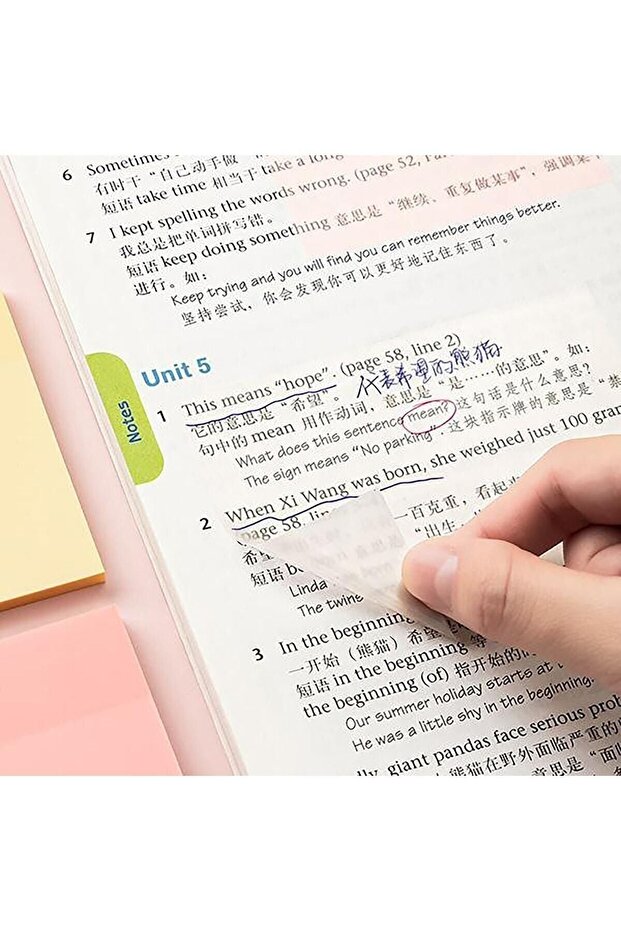 6 Sometimes
有时干“自己动手做
短语 take time 相当于 take a long
(page 52,
7 I kept spelling the words wrong.
我总是把单词拼写错。
短语 keep doing something 意思是“继续、重复做某事”，强调某
进行。如：
Keep trying and you will find you can remember things better.
坚持尝试，你会发现你可以更好地记住东西了。
Notes
Unit 5
1 This means “hope”. (page 58, line 2)
代表希望的熊猫
它的意思是“希望”。
句中的 mean 用作动词，意思是“是……的意思”。如：
What does this sentence mean? 这句话是什么意思？
The sign means “No parking”. 这块指示牌的意思是“禁
2 When Xi Wang was born, she weighed just 100 gram
(page 58, line
一百克重，看起来
希望
短语 be
“出生
Linda
The twins
3 In the beginning
一开始（熊猫）希望
短语 in the beginning
the beginning (of) 指开始的
Our summer holiday starts at
He was a little shy in the beginning.
giant pandas face serious prob
熊猫在野外面临严重的
意思是“面临